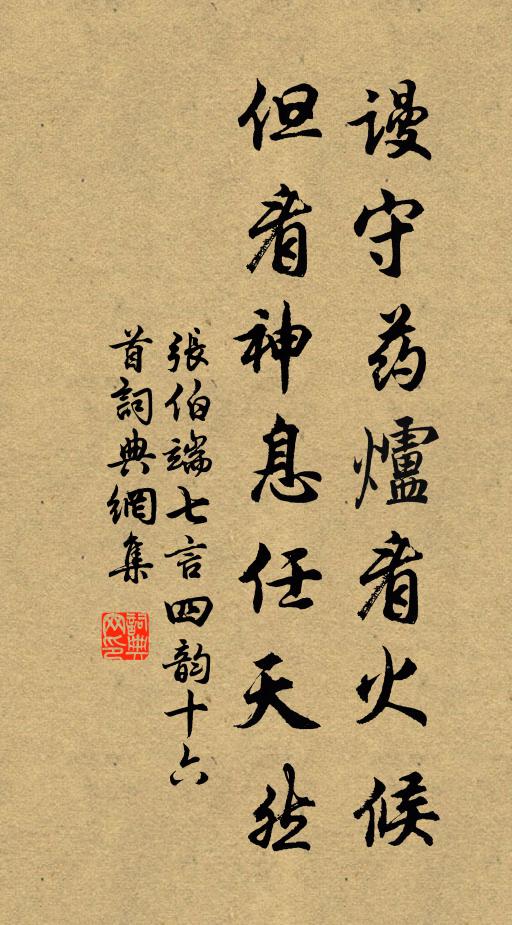 谩守药爐看火候
但看神息任天然
張伯端七言四韵十六
首詞典網集
詞典網印